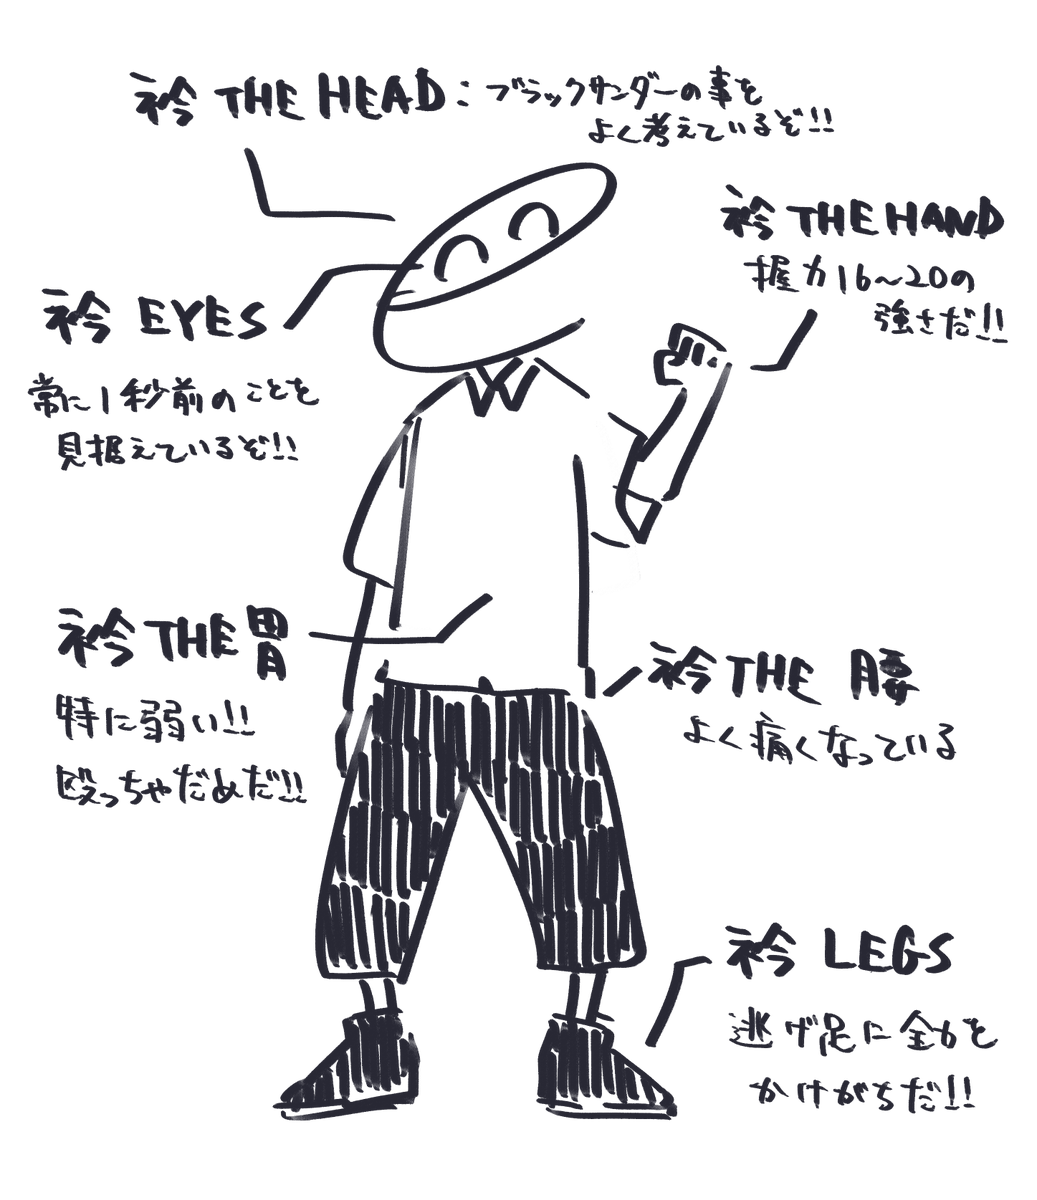 衿 THE HEAD：ブラックサンダーの事を
よく考えているぞ!!
衿 THE HAND
握力16〜20の
強さだ!!
衿 EYES
常に1秒前のことを
見据えているぞ!!
衿 THE 胃
特に弱い!!
殴っちゃだめだ!!
衿 THE 腰
よく痛くなっている
衿 LEGS
逃げ足に全力を
かけがちだ!!